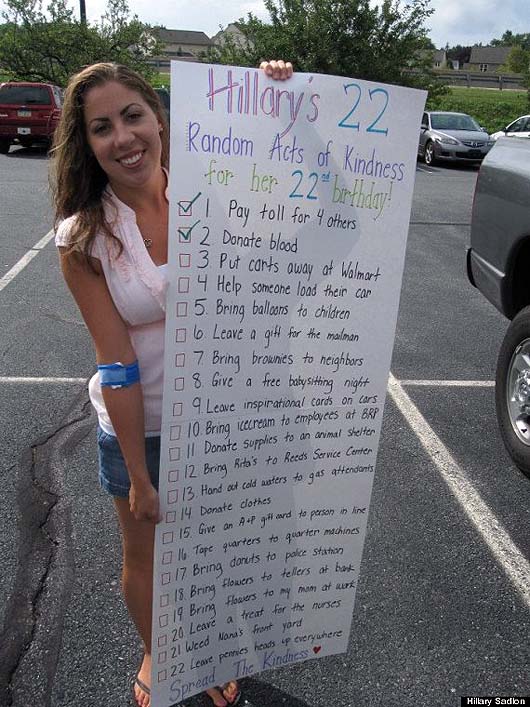 Hillary's 22
Random Acts of Kindness
for her 22nd birthday!
1 Pay toll for 4 others
2 Donate blood
3 Put carts away at Walmart
4 Help someone load their car
5. Bring balloons to children
6. Leave a gift for the mailman
7 Bring brownies to neighbors
8 Give a free babysitting night
9 Leave inspirational cards on cars
10 Bring icecream to employees at BRP
11 Donate supplies to an animal shelter
12 Bring Rita's to Reeds Service Center
13. Hand out cold waters to gas attendants
14 Donate clothes
15. Give an A+P gift card to person in line
16 Tape quarters to quarter machines
17 Bring donuts to police station
18 Bring flowers to tellers at bank
19 Bring flowers to my mom at work
20 Leave a treat for the nurses
21 Weed Nana's front yard
22 Leave pennies heads up everywhere
Spread The Kindness
Hillary Sadlon